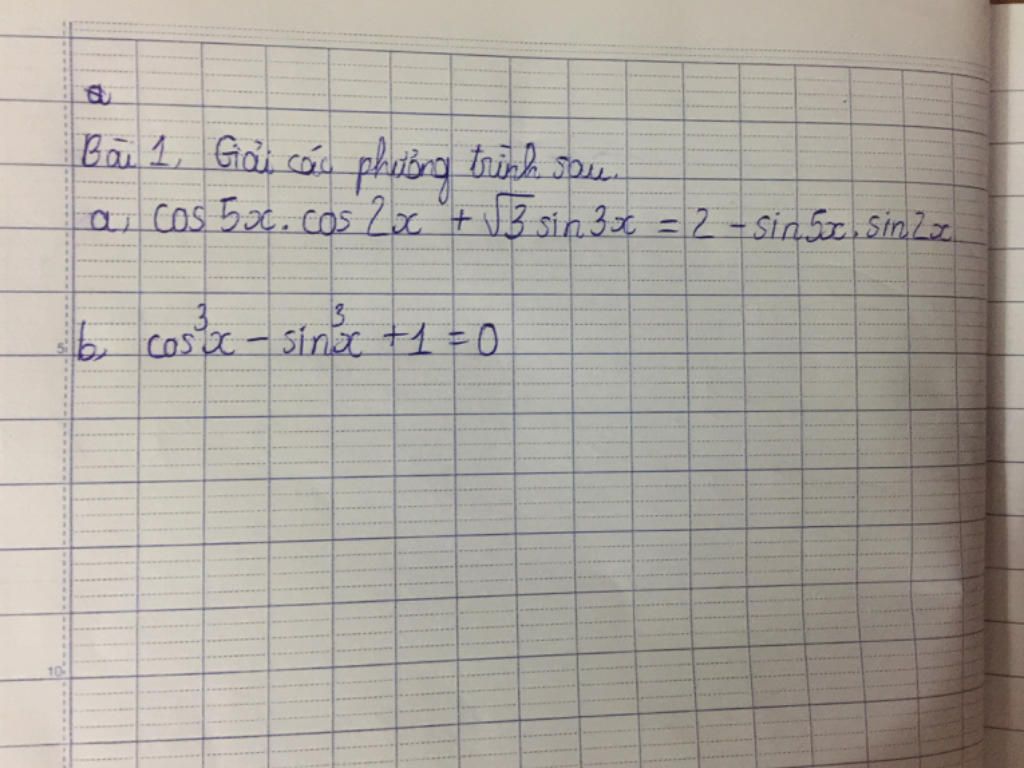 a
Bài 1, Giải các phương trình sau.
a, cos 5x . cos 2x + √3 sin 3x = 2 - sin 5x . sin 2x
5
b, cos³x - sin³x + 1 = 0
10